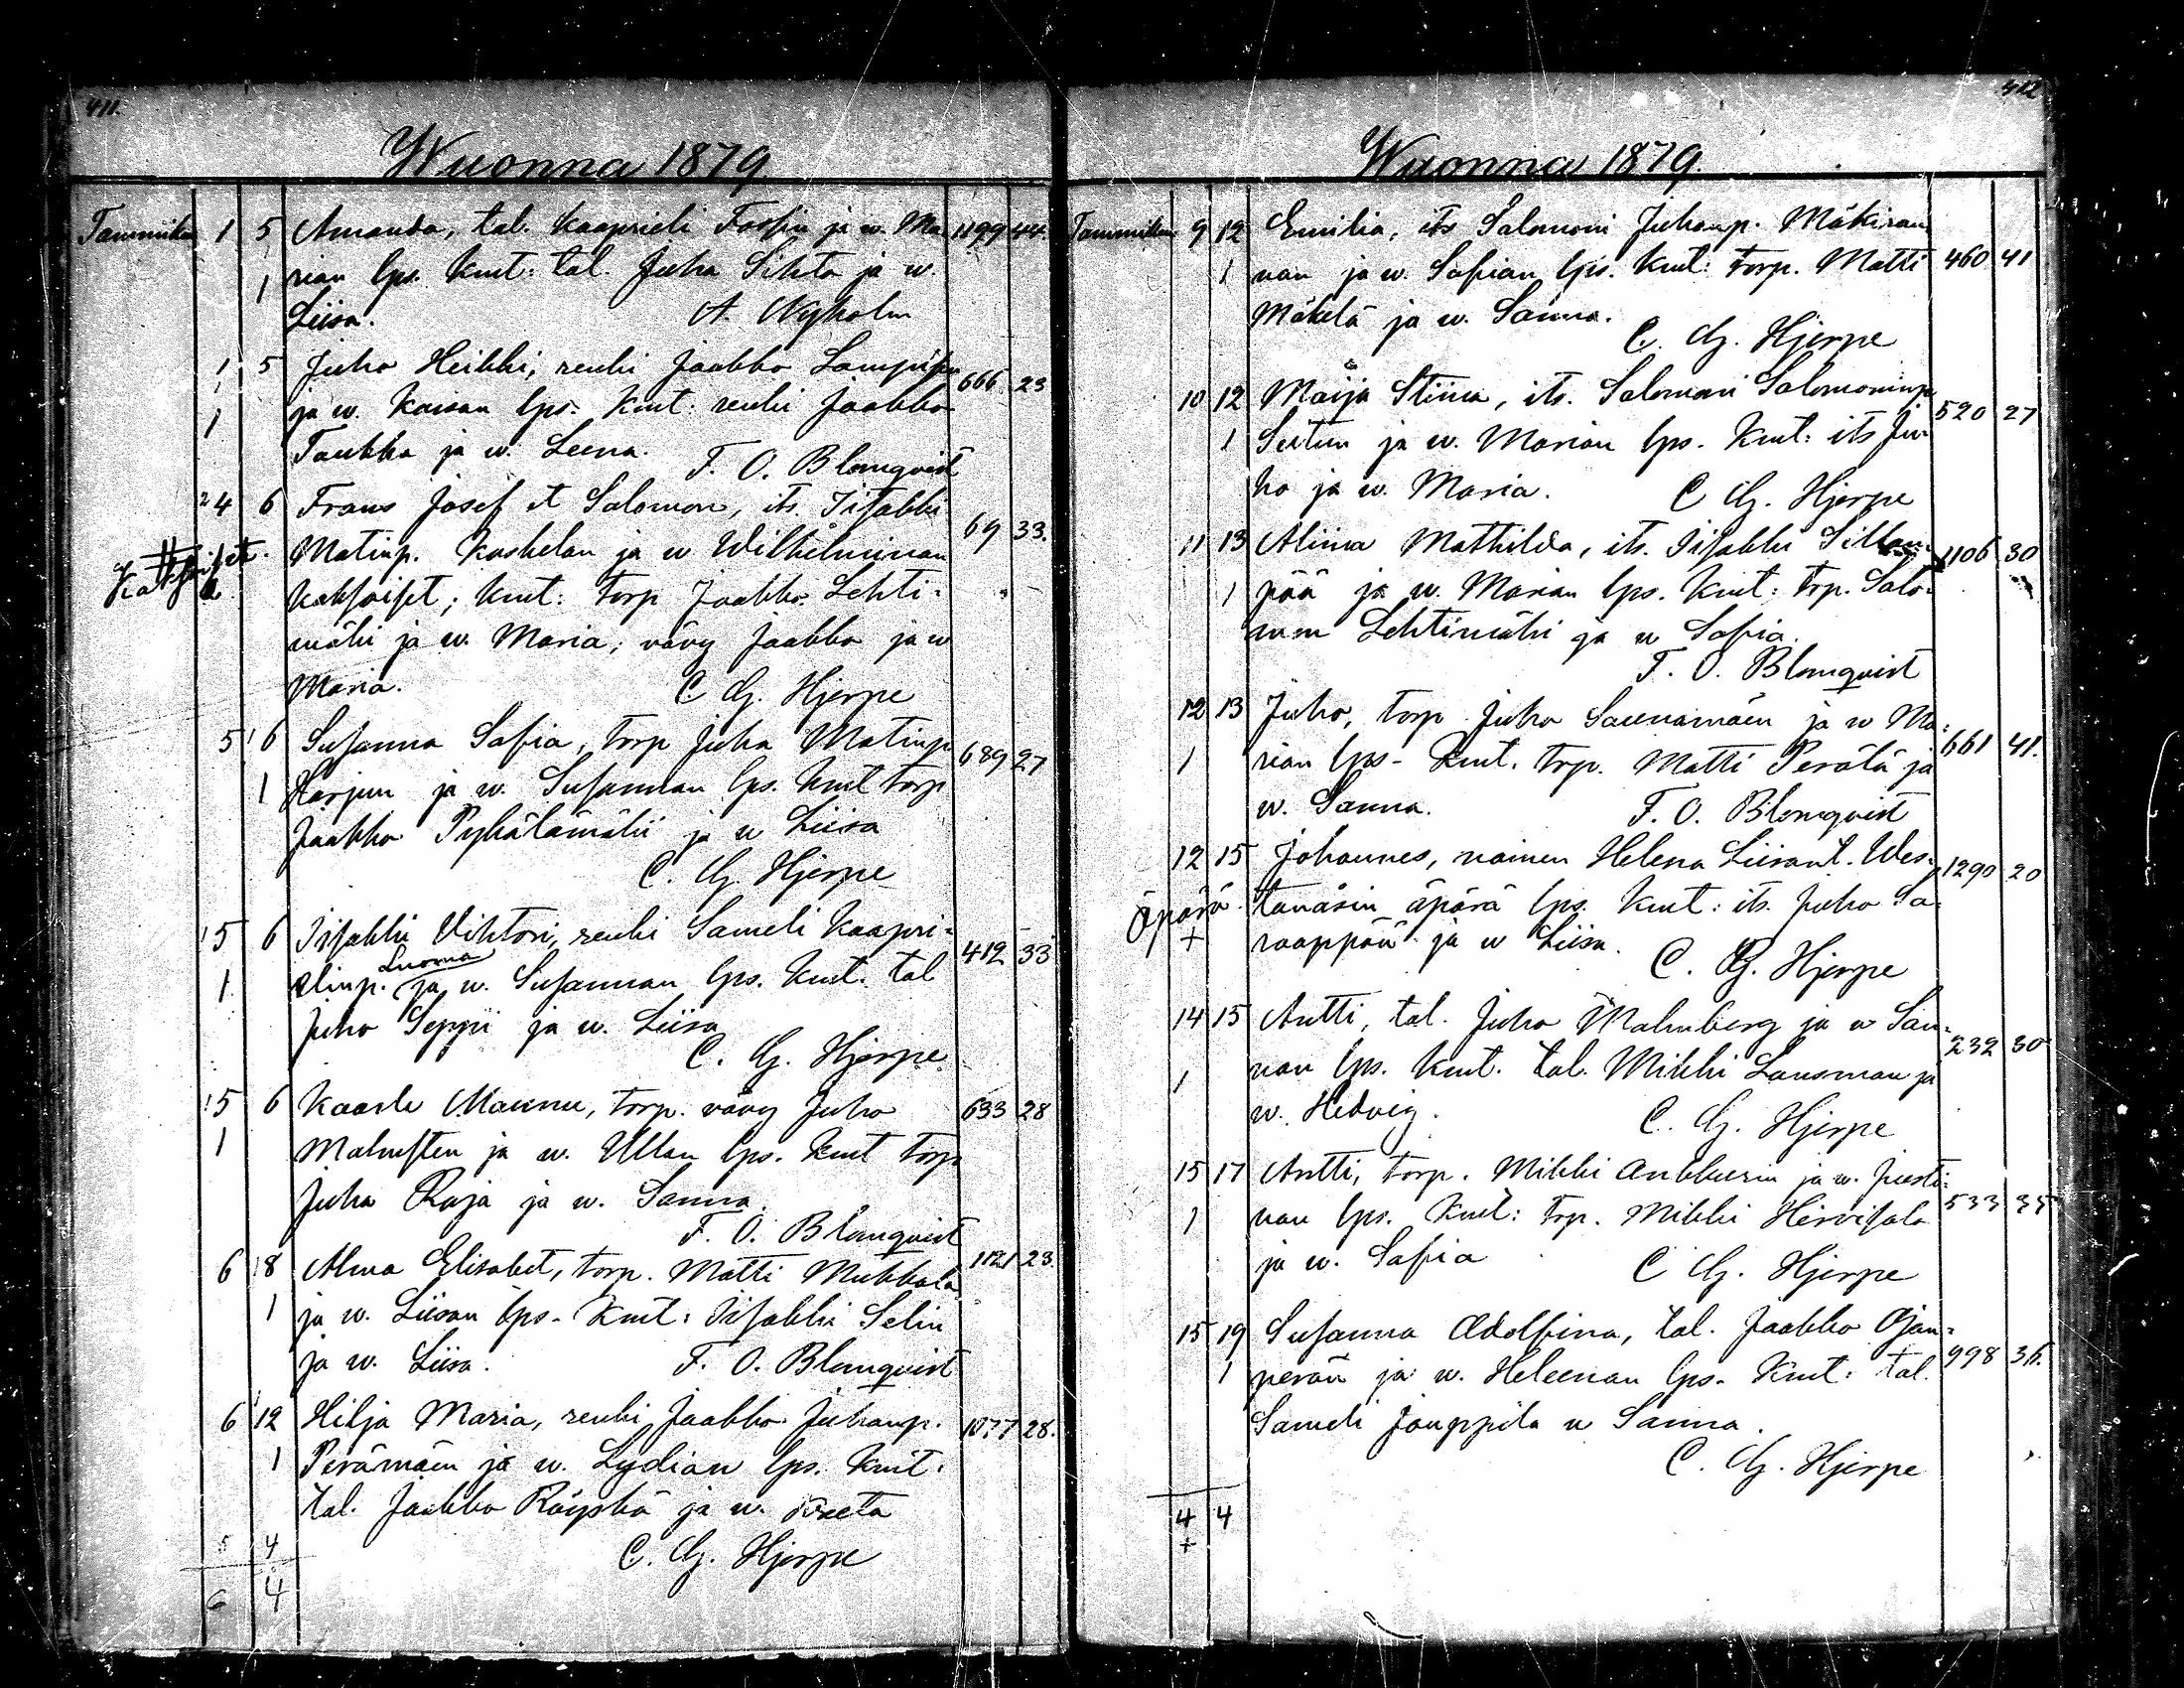 411.
Wuonna 1879
Tammikuu 1 5 Amanda, tal. Kaaprieli Fossin ja w. Ma 1199 44.
1 rian lps. Kmt: tal. Juha Sihto ja w.
Liisa. A. Nyholm
1 5 Juho Heikki, renki Jaakko 666 23
1 ja w. Kaisan lps. Kmt: renki Jaakko
Taukka ja w. Leena. F. O. Blomqvist
4 6 Frans Josef et Salomon, its. Iisakki 69 33.
Matinp. Koskelan ja w Wilhelminan
kaksoiset; Kmt: torp Jaakko Lehti-
mäki ja w. Maria; vävy Jaakko ja w
Maria. C. G. Hjerpe
5 6 Susanna Sofia, torp Juha Matinp 689 27
1 Harjun ja w. Susannan lps. Kmt torp
Jaakko Pyhälämäki ja w Liisa
C. G. Hjerpe
5 6 Iisakki Vihtori, renki Sameli Kaapri- 412 33
Luoma
1 elinp. ja w. Susannan lps. Kmt. tal
Juho Seppi ja w. Liisa
C. G. Hjerpe
5 6 Kaarle Maunu, torp. vävy Juho 633 28
1 Malmsten ja w. Ullan lps. Kmt torp
Juha Raja ja w. Sanna.
F. O. Blomqvist
6 8 Alma Elisabet, torp. Matti Mukkala 1121 23.
1 ja w. Liisan lps. Kmt: Iisakki Selin
ja w. Liisa. F. O. Blomqvist
6 12 Hilja Maria, renki Jaakko Juhanp. 1077 28.
1 Perämäen ja w. Lydian lps. Kmt.
tal. Jaakko Röyskö ja w. Greeta
5 4 C. G. Hjerpe
6 4
412
Wuonna 1879.
Tammikuu 9 12 Emilia, its Salomoni Juhanp. Mäkiran
1 nan ja w. Sofian lps. Kmt: torp. Matti 460 41
Mäkelä ja w. Sanna.
C. G. Hjerpe
10 12 Maija Stiina, its. Salomoni Salomoninp 520 27
1 Sutun ja w. Marian lps. Kmt: its Ju-
ho ja w. Maria. C G. Hjerpe
11 13 Aliina Mathilda, its. Iisakki Sillan- 1106 30
1 pää ja w. Marian lps. Kmt: trp. Salo-
mon Lehtimäki ja w Sofia.
F. O. Blomqvist
12 13 Juho, torp Juho Saunamäen ja w Ma- 661 41.
1 rian lps. Kmt. trp. Matti Perälä ja
w. Sanna. F. O. Blomqvist
12 15 Johannes, nainen Helena Liisant. Wes- 1290 20
äpärä. tanäsin äpärä lps. Kmt: its. Juho Sa-
+ raappää ja w Liisa. C. G. Hjerpe
14 15 Antti, tal. Juho Malmberg ja w San- 232 30
1 nan lps. Kmt. tal. Mikki Lansman ja
w. Hedvig. C. G. Hjerpe
15 17 Antti, torp. Mikki Ankkurin ja w. Justi- 533 35
1 nan lps. Kmt: trp. Mikki Hirvisalo
ja w. Sofia C G. Hjerpe
15 19 Susanna Adolfina, tal. Jaakko Ojan-
1 perän ja w. Heleenan lps. Kmt: tal. 998 36.
Sameli Jouppila w Sanna.
C. G. Hjerpe
4 4
+